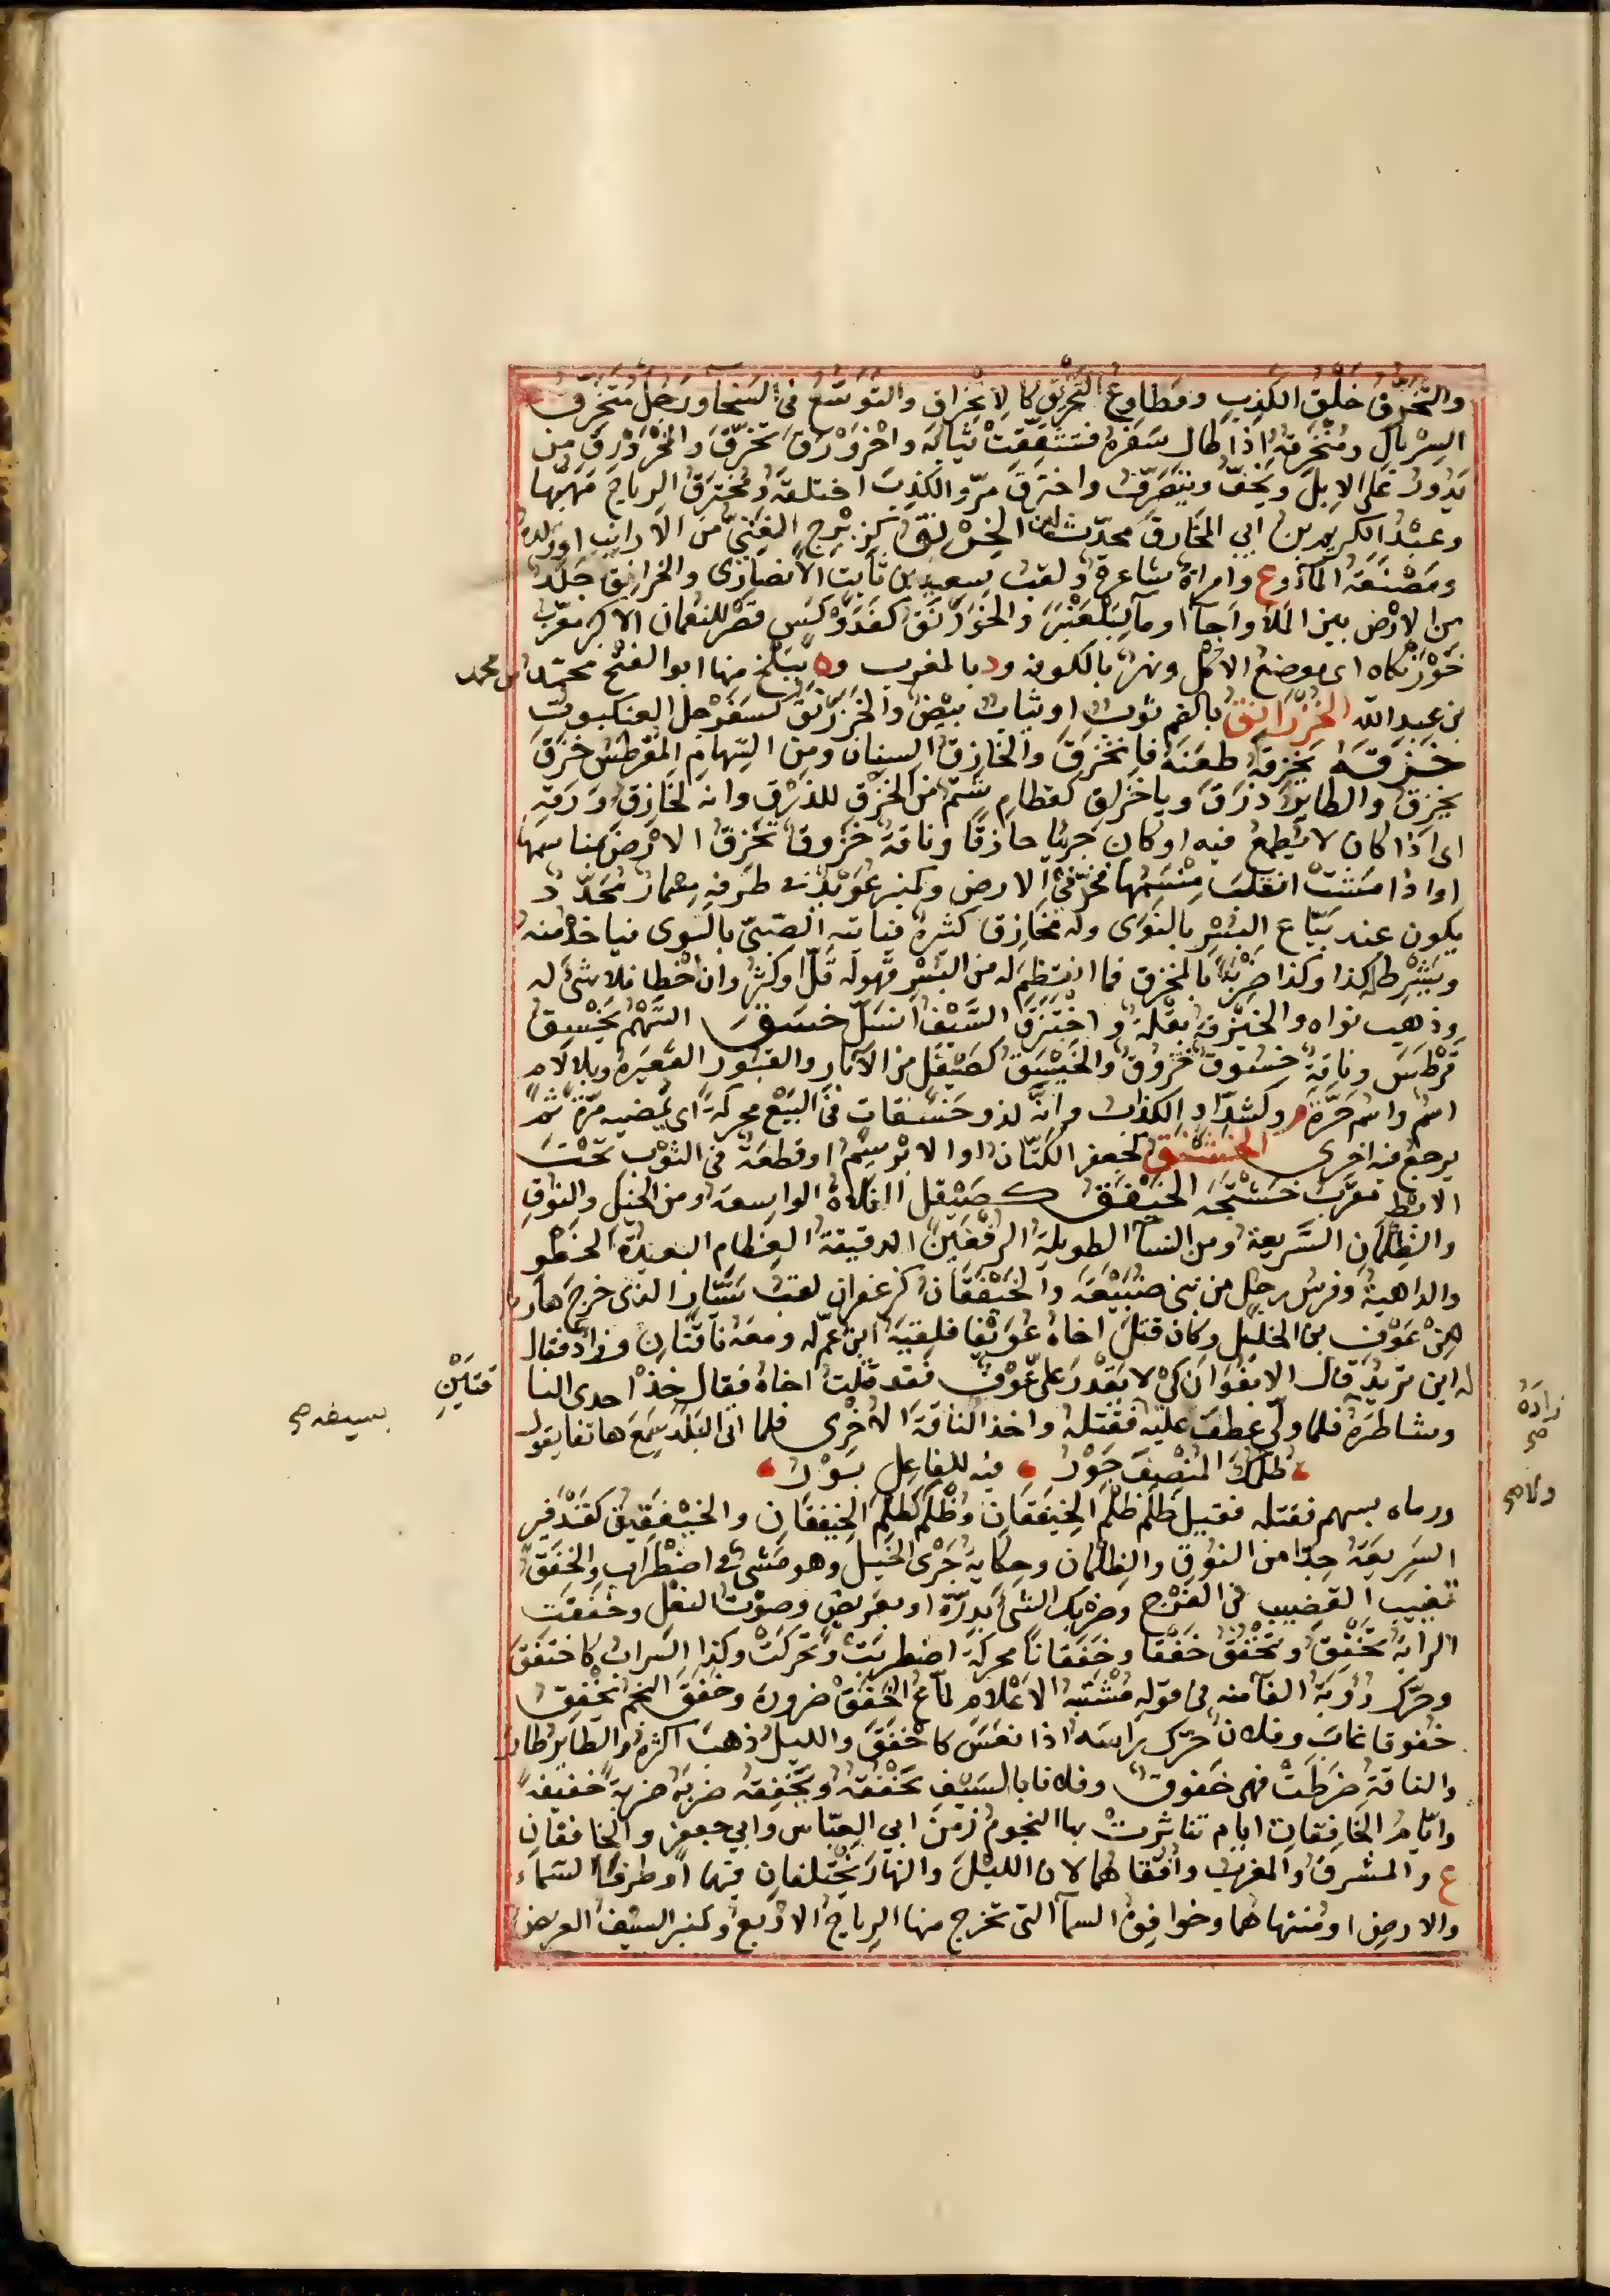 والتَّخَرُّق خَلْقُ الكَذِبِ ومُطاوِعُ التَّخريق كالاِنخِراق والتَّوَسُّعُ في السَّخاء ورَجُلٌ مُتَخَرِّقُ
السِرْبالِ ومُنْخَرِقُهُ اذا طال سَفَرُه فتشقّقتْ ثيابُه واخْرَوْرَقَ تَخَرَّقَ والمُخْرَوْرِقُ من
يَدُورُ عَلَى الاِبِلِ ويَخِفُّ ويَتَصَرَّفُ واخترقَ مرّ والكَذِبَ اختلقهُ ومُخْتَرَقُ الرياحِ مَهَبُّها
وعبْدُ الكريم بن ابي المُخارِقِ محدِّث الخِرْنِقُ كزِبْرِجٍ الفَتِيُّ من الارانِبِ او وَلَدُه
ومَصْنَعَةُ المآءِ وع وامراة شاعرة ولقبُ سعيد بن ثابت الأنصاري والخَرانِقُ جَلَد
من الارْضِ بين المَلَا واَجَأ او مآء لِبَلْعَنْبَرِ والخَوَرْنَقُ كفَدَوْكَسٍ قَصْرٌ للنعمان الاكبر معرّب
خَوَرَنْكاه اى موضع الاكل ونهرٌ بالكوفه ود بالمغرب وة ببَلْخ منها ابو الفتْح محمّد بن محمد
بن عبد الله الخُزْرانِقُ بالضم ثوب او ثياب بيْض والخَزَرْنَقُ كسَفَرْجَل العنكبوت
خَزَقَهُ يَخْزِقُهُ طعَنَهُ فانْخَزَقَ والخازِقُ السِنان ومن السِّهام المُقَرطِسُ خزَقَ
يخزِقُ والطائرُ ذَرَقَ ويا خَزَاقِ كقطامِ شتْم من الخَزْق للذَرْق وانه لخازِقُ وَرَقِهِ
اى اذا كان لا يُطمعُ فيه او كان جريّا حاذقًا وناقة خَزُوقٌ تَخزِقُ الارْضَ بمناسمها
او اذا مَشَتْ انقلبَ مَنْسِمُها فخدَّ في الارض وكمنبر عُوَيْد في طَرَفِه مِسْمارٌ مُحَدَّد
يكون عند بَيّاع البُسْر بالنوى وله مخازق كثيرة فياتيه الصبىّ بالنوى فياخذ منه
ويَشْرِط له كذا وكذا ضرْبَةً بالمخزق فما انتظم له من البُسْر فهو له قلّ او كثر وان اخْطا فلا شئ له
وذهب نواه والخَيْزَقَةُ بقلة واخْتَزَقَ السَّيفُ انسَلَّ خسَقَ السَّهْمُ يَخْسِقُ
قرْطَسَ وناقة خَسُوق خَزُوق والخَيْسَقُ كصَيْقَل من الآبار والقبور القعيرة وبلا لام
اسم واسم حَرَّة وكشَدّادٍ الكَذّاب وانّه لذو خَسَقات في البيْع محركة اى يُمضيه مرّةً ثُمّ
يرجع فيه اخرى الخشْتَق كجعفر الكَتّان او الاِبْرِيسَمُ او قطعة في الثوب تَحْتَ
الابْط معرّب خَشْتَجَه الخَيْفَق كصَيْقل الفلاة الواسعة ومن الخيل والنوق
والظِلمانِ السَّريعة ومن النسآء الطويلة الرفْغَيْن الدقيقة العظام البعيدة الخطو
والداهية وفرس رجل من بنى ضُبَيْعَة والخَيْفَقان كزعفران لقب سَيّار الذي خرج هاربا
من عَوْف بن الخليل وكان قتل اخاه عُوَيْفا فلقيه ابن عمّ له ومعه ناقتان وزادٌ فقال
له اين تريد قال الاَشْفَران كيْ لا يَقْدِر علىّ عَوْف فقد قتلتُ اخاه فقال خذ احدى النا
قتَيْنِ
زادَهُ صح
وشاطَرَه فلما ولّى عطفَ عليه فقتله واخذ الناقةَ الاخْرى فلما اتى البَلَد سَمِعَ هاتفا يقول
بسيفه صح
ظُلْمُكَ المُنْصِفَ جَوْر فيه للفاعل بَوْر
ولا صح
ورماه بسهم فقتله فقيل ظُلْم ظُلْمُ الخَيْفَقان وظُلْمٌ كظُلْمِ الخَيْفقانِ والخَنْفَقيق كقَنْدَفير
السَريعة جدّا من النوق والظلمان وحكاية جَرْىِ الخيل وهو مَشىٌ في اضطراب والخَفْق
تغييب القضيب في الفرْج وضربك الشئ بدِرّة او بعريض وصوْت النعل وخفقت
الراية تَخْفِقُ وتَخْفُق خَفْقًا وخَفَقانًا محركة اضطربت وتحركت وكذا السراب كاختفق
وحَرّك رُؤبة الفآء منه في قوله مُشْتَبِهِ الاعْلام لمّاعِ الخَفَقْ ضرورة وخفق النجم تخفِق
خفوقا غابَ وفلان حرّك براسه اذا نعَسَ كاخْفَقَ والليل ذهب اكثره والطائر طار
والناقة ضَرَطَتْ فهي خَفوق وفلانا بالسيف يَخْفُقُهُ ويَخْفِقُه ضربه ضربة خفيفة
وايّام الخافقات ايام تناثرت بها النجوم زمنَ ابي العبّاس وابي جعفر والخافقان
ع والمشرق والمغرب وافُقاهما لان الليل والنهار يختلفان فيهما او طرفا السماء
والارض او منتهاهما وخوافق السمآء التي تخرج منها الرياح الاربع وكمنبر السيف العريض